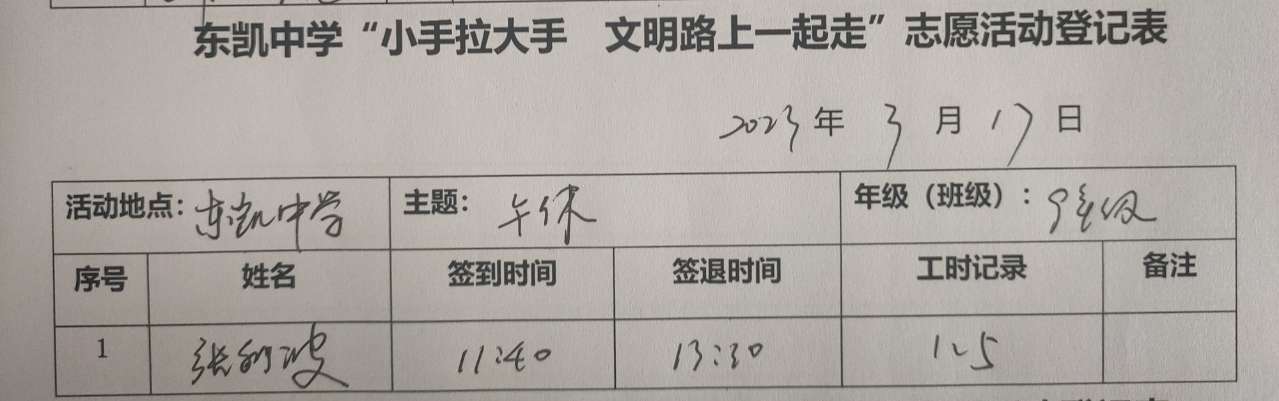 东凯中学“小手拉大手 文明路上一起走”志愿活动登记表
2023年 3月17日
活动地点：东凯中学 主题：午休 年级（班级）：9年级
序号 姓名 签到时间 签退时间 工时记录 备注
1 张 波 11:40 13:30